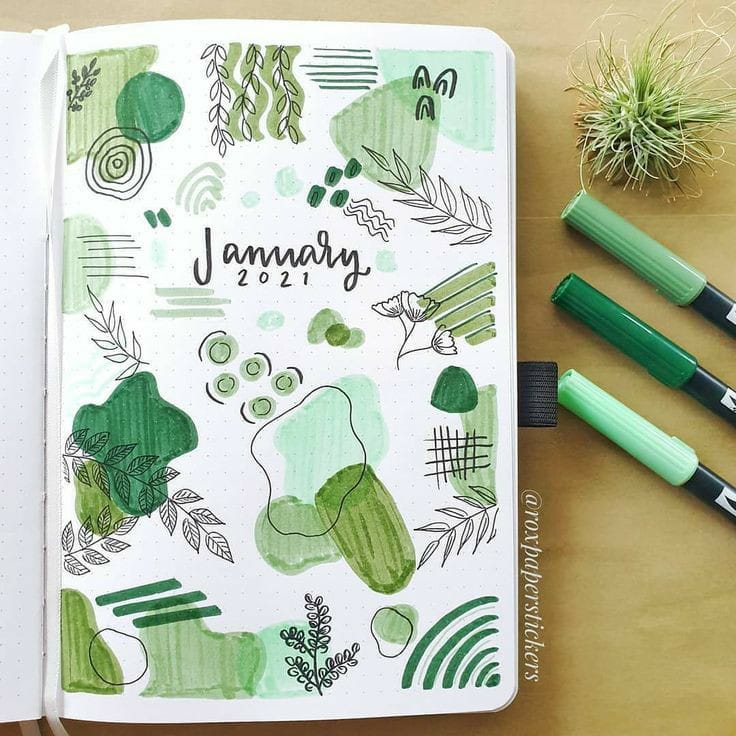 January
2021
@roxpaperstickers